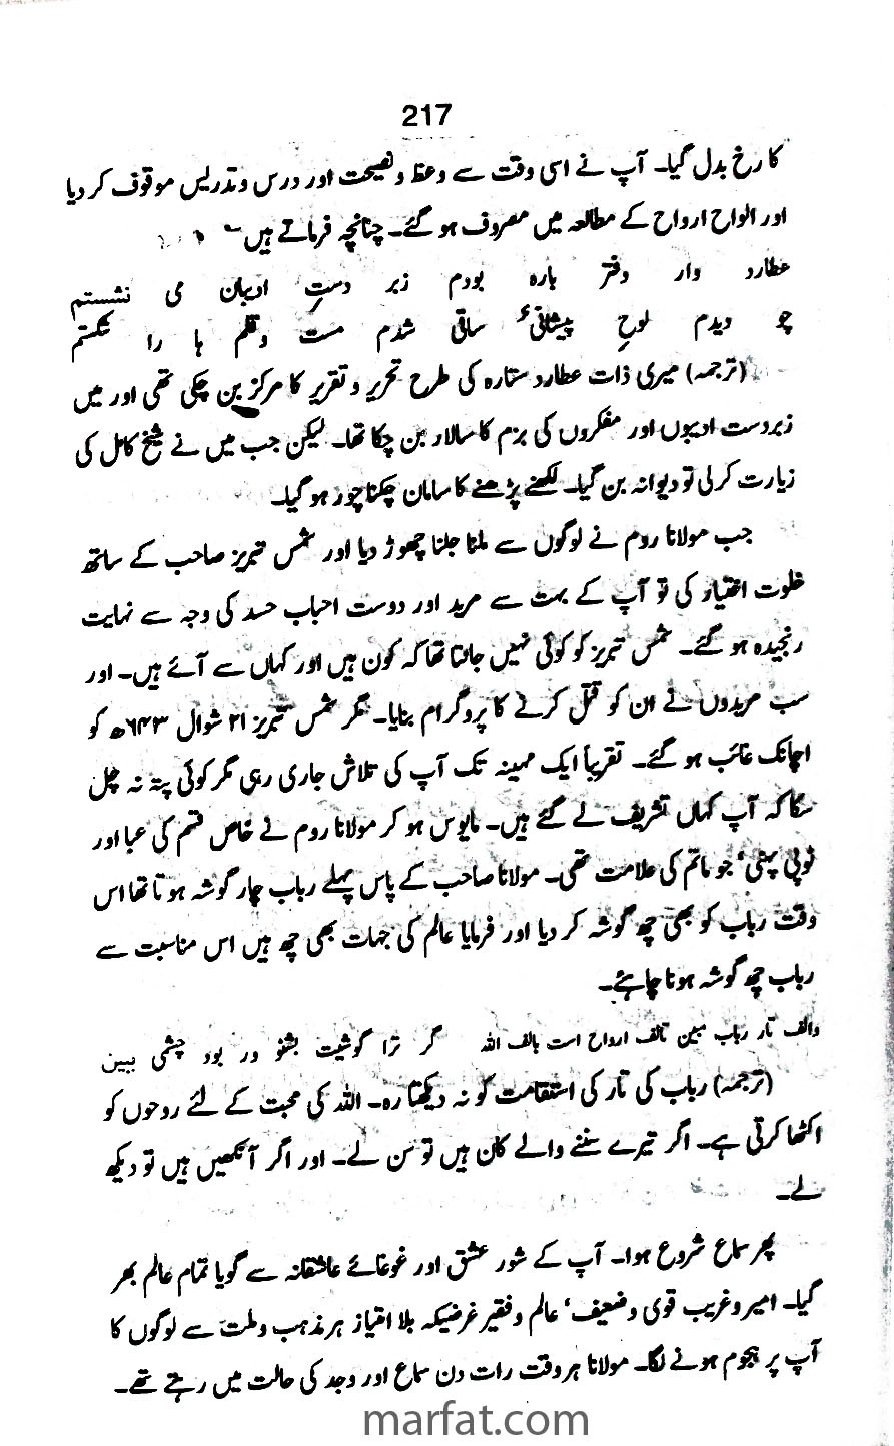 217
کا رخ بدل گیا۔ آپ نے اسی وقت سے وعظ و نصیحت اور درس و تدریس موقوف کر دیا
اور الواح ارواح کے مطالعہ میں مصروف ہو گئے۔ چنانچہ فرماتے ہیں
عطارد وار دفتر بارہ بودم زبر دستِ ادیبان می نشستم
چو دیدم لوحِ پیشانیٔ ساقی شدم مست و قلم ہا را شکستم
(ترجمہ) میری ذات عطارد ستارہ کی طرح تحریر و تقریر کا مرکز بن چکی تھی اور میں
زبردست ادیبوں اور مفکروں کی بزم کا سالار بن چکا تھا۔ لیکن جب میں نے شیخ کامل کی
زیارت کر لی تو دیوانہ بن گیا۔ لکھنے پڑھنے کا سامان چکنا چور ہو گیا۔
جب مولانا روم نے لوگوں سے ملنا جلنا چھوڑ دیا اور شمس تبریز صاحب کے ساتھ
خلوت اختیار کی تو آپ کے بہت سے مرید اور دوست احباب حسد کی وجہ سے نہایت
رنجیدہ ہو گئے۔ شمس تبریز کو کوئی نہیں جانتا تھا کہ کون ہیں اور کہاں سے آئے ہیں۔ اور
سب مریدوں نے ان کو قتل کرنے کا پروگرام بنایا۔ مگر شمس تبریز ۲۱ شوال ۶۴۳ھ کو
اچانک غائب ہو گئے۔ تقریباً ایک مہینہ تک آپ کی تلاش جاری رہی مگر کوئی پتہ نہ چل
سکا کہ آپ کہاں تشریف لے گئے ہیں۔ مایوس ہو کر مولانا روم نے خاص قسم کی عبا اور
ٹوپی پہنی، جو ماتم کی علامت تھی۔ مولانا صاحب کے پاس پہلے رباب چار گوشہ ہوتا تھا اس
وقت رباب کو بھی چھ گوشہ کر دیا اور فرمایا عالم کی جہات بھی چھ ہیں اس مناسبت سے
رباب چھ گوشہ ہونا چاہئے۔
والف تار رباب مبین تالف ارواح است بالف اللہ گر ترا گوشیت بشنو در بود چشمی ببین
(ترجمہ) رباب کی تار کی استقامت کو نہ دیکھتا رہ۔ اللہ کی محبت کے لئے روحوں کو
اکٹھا کرتی ہے۔ اگر تیرے سننے والے کان ہیں تو سن لے۔ اور اگر آنکھیں ہیں تو دیکھ
لے۔
پھر سماع شروع ہوا۔ آپ کے شور عشق اور غوغائے عاشقانہ سے گویا تمام عالم بھر
گیا۔ امیر و غریب قوی و ضعیف، عالم و فقیر غرضیکہ بلا امتیاز ہر مذہب و ملت سے لوگوں کا
آپ پر ہجوم ہونے لگا۔ مولانا ہر وقت رات دن سماع اور وجد کی حالت میں رہتے تھے۔
marfat.com